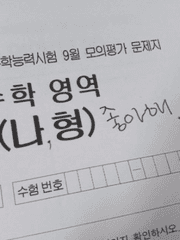 학능력시험 9월 모의평가 문제지
수학 영역
(나,형) 좋아해.
수험 번호
확인하시오.